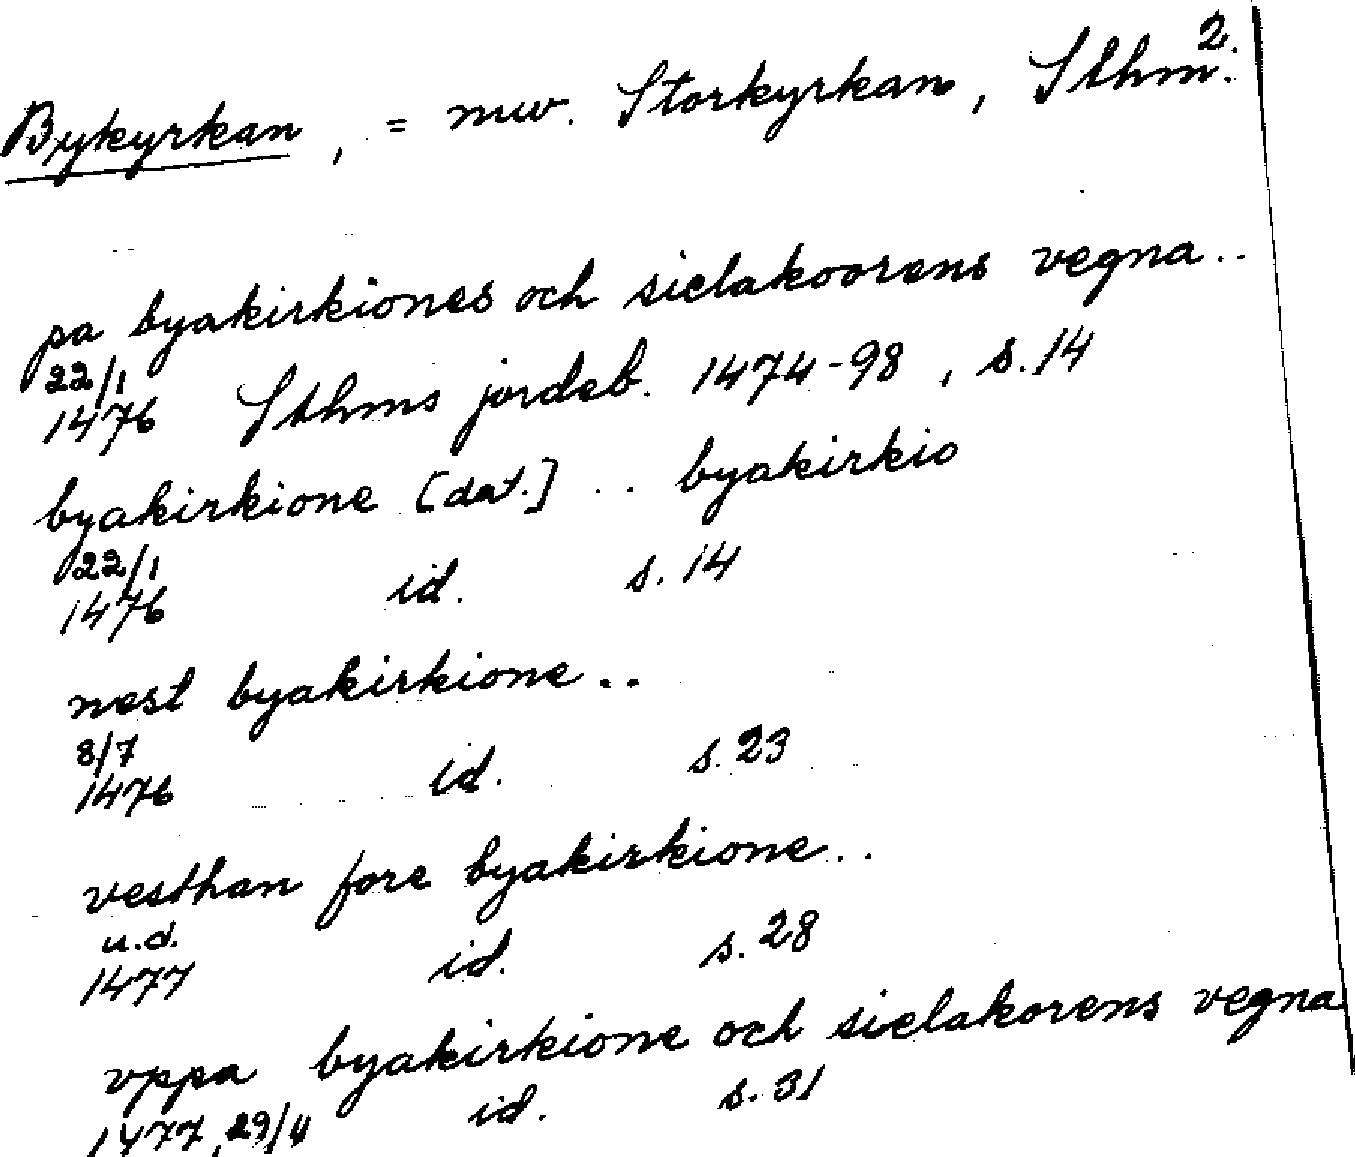 2.
Bykyrkan, = nuv. Storkyrkan, Sthm.
pa byakirkiones och sielakoorens vegna..
22/1
1476 Sthms jordeb. 1474-98, s. 14
byakirkione [dat.] .. byakirkio
22/1
1476 id. s. 14
nest byakirkione..
8/7
1476 id. s. 23
vesthan fore byakirkione..
u.d.
1477 id. s. 28
vppa byakirkione och sielakorens vegna
1477, 29/4 id. s. 31